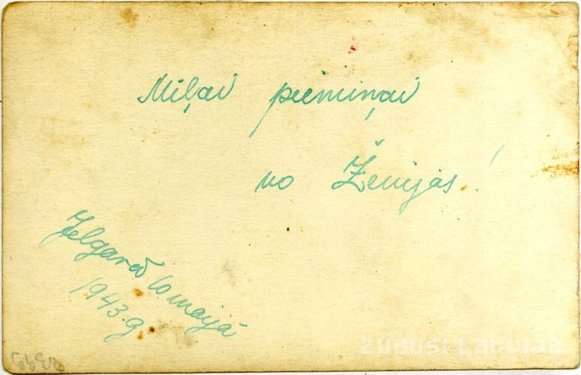 Miļai piemiņai
no Ženijas!
Jelgavā 10 maijā
1943.g
ZUDUSI LATVIJA